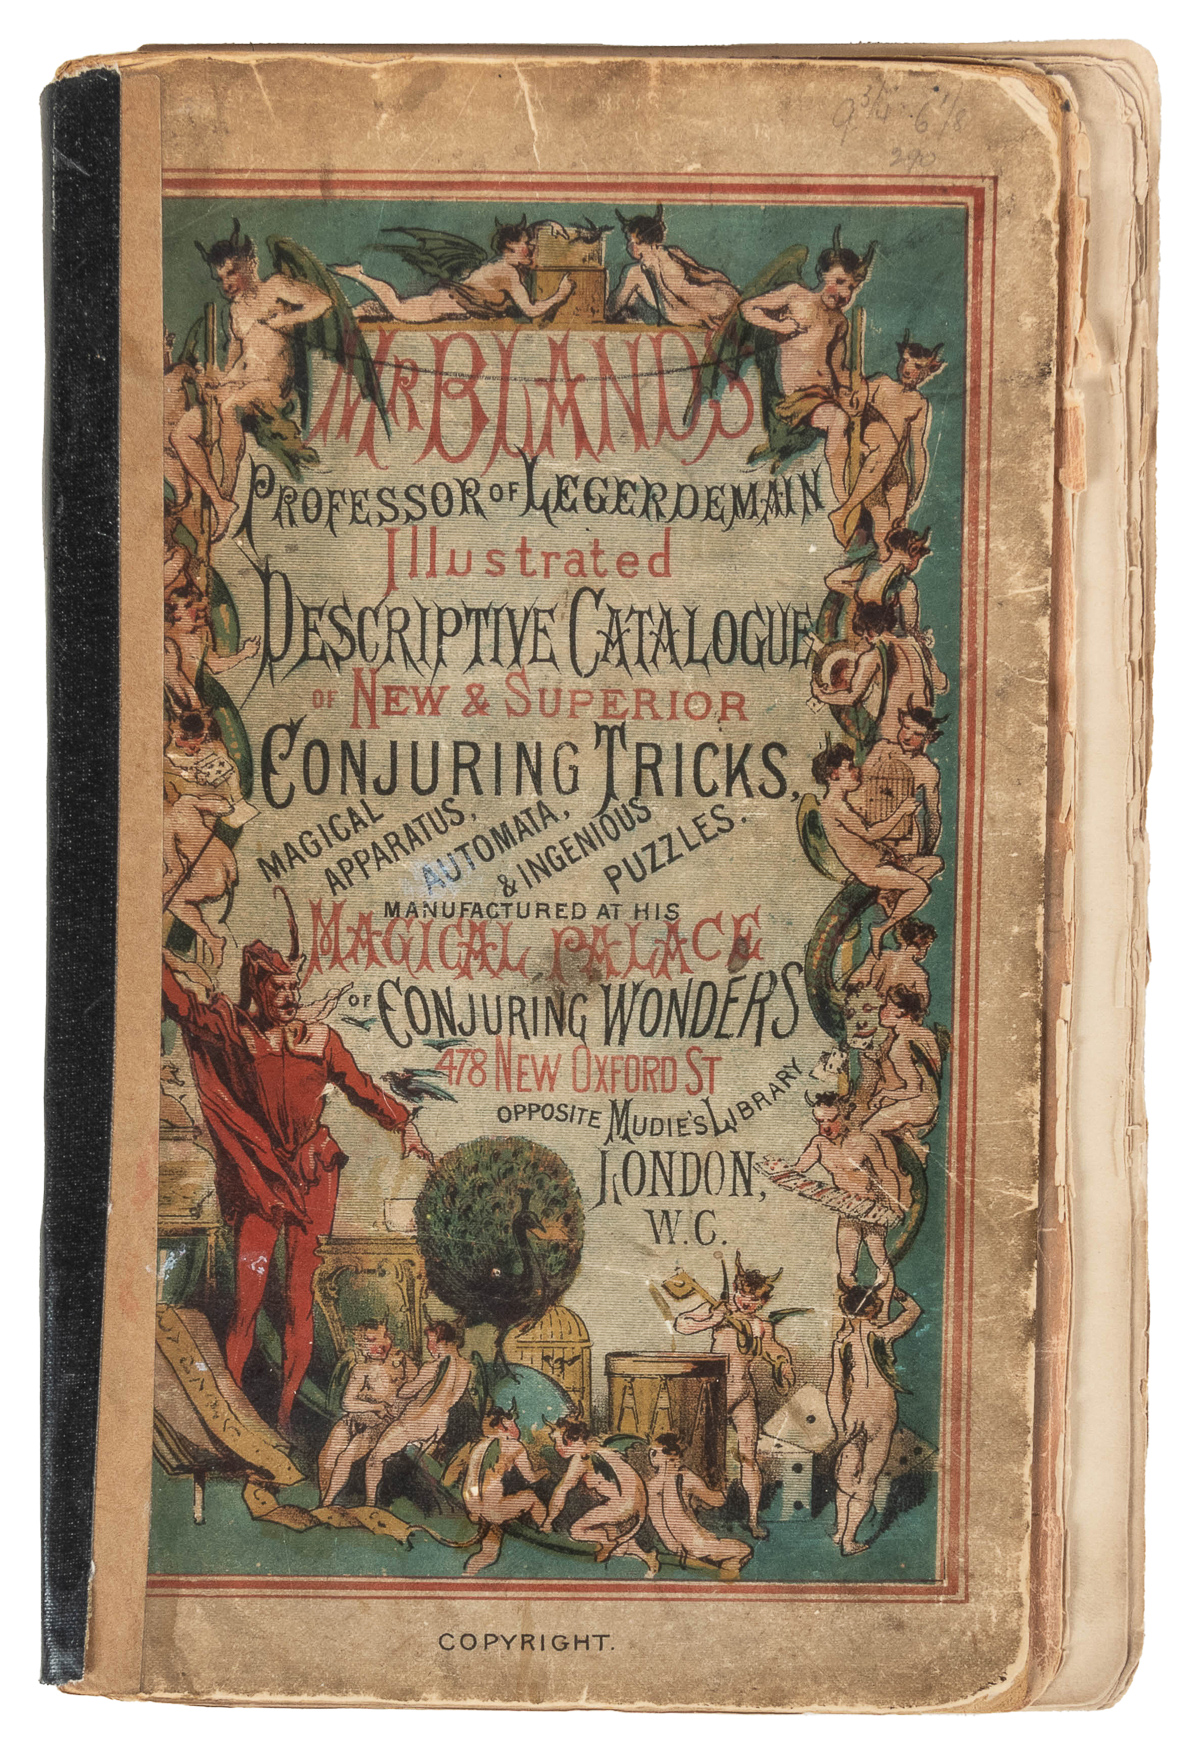 9 3/4 · 6 1/8
290
Mr BLAND'S
PROFESSOR OF LEGERDEMAIN
Illustrated
DESCRIPTIVE CATALOGUE
OF NEW & SUPERIOR
CONJURING TRICKS,
MAGICAL
APPARATUS,
AUTOMATA,
& INGENIOUS
PUZZLES.
MANUFACTURED AT HIS
MAGICAL PALACE
OF CONJURING WONDERS
478 NEW OXFORD ST
OPPOSITE MUDIE'S LIBRARY
LONDON,
W.C.
COPYRIGHT.